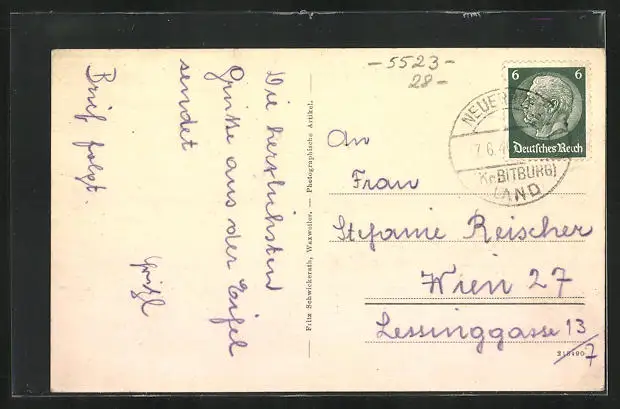 - 5523 -
28 -
6 6
Deutsches Reich
7.6.4
(Kr. BITBURG)
LAND
Die herzlichsten
Grüße aus der Eifel
sendet
Brief folgt.
Fritz Schwickerath, Waxweiler. — Photographische Artikel.
An
Frau
Stefanie Reischer
Wien 27
Lessinggasse 13/7